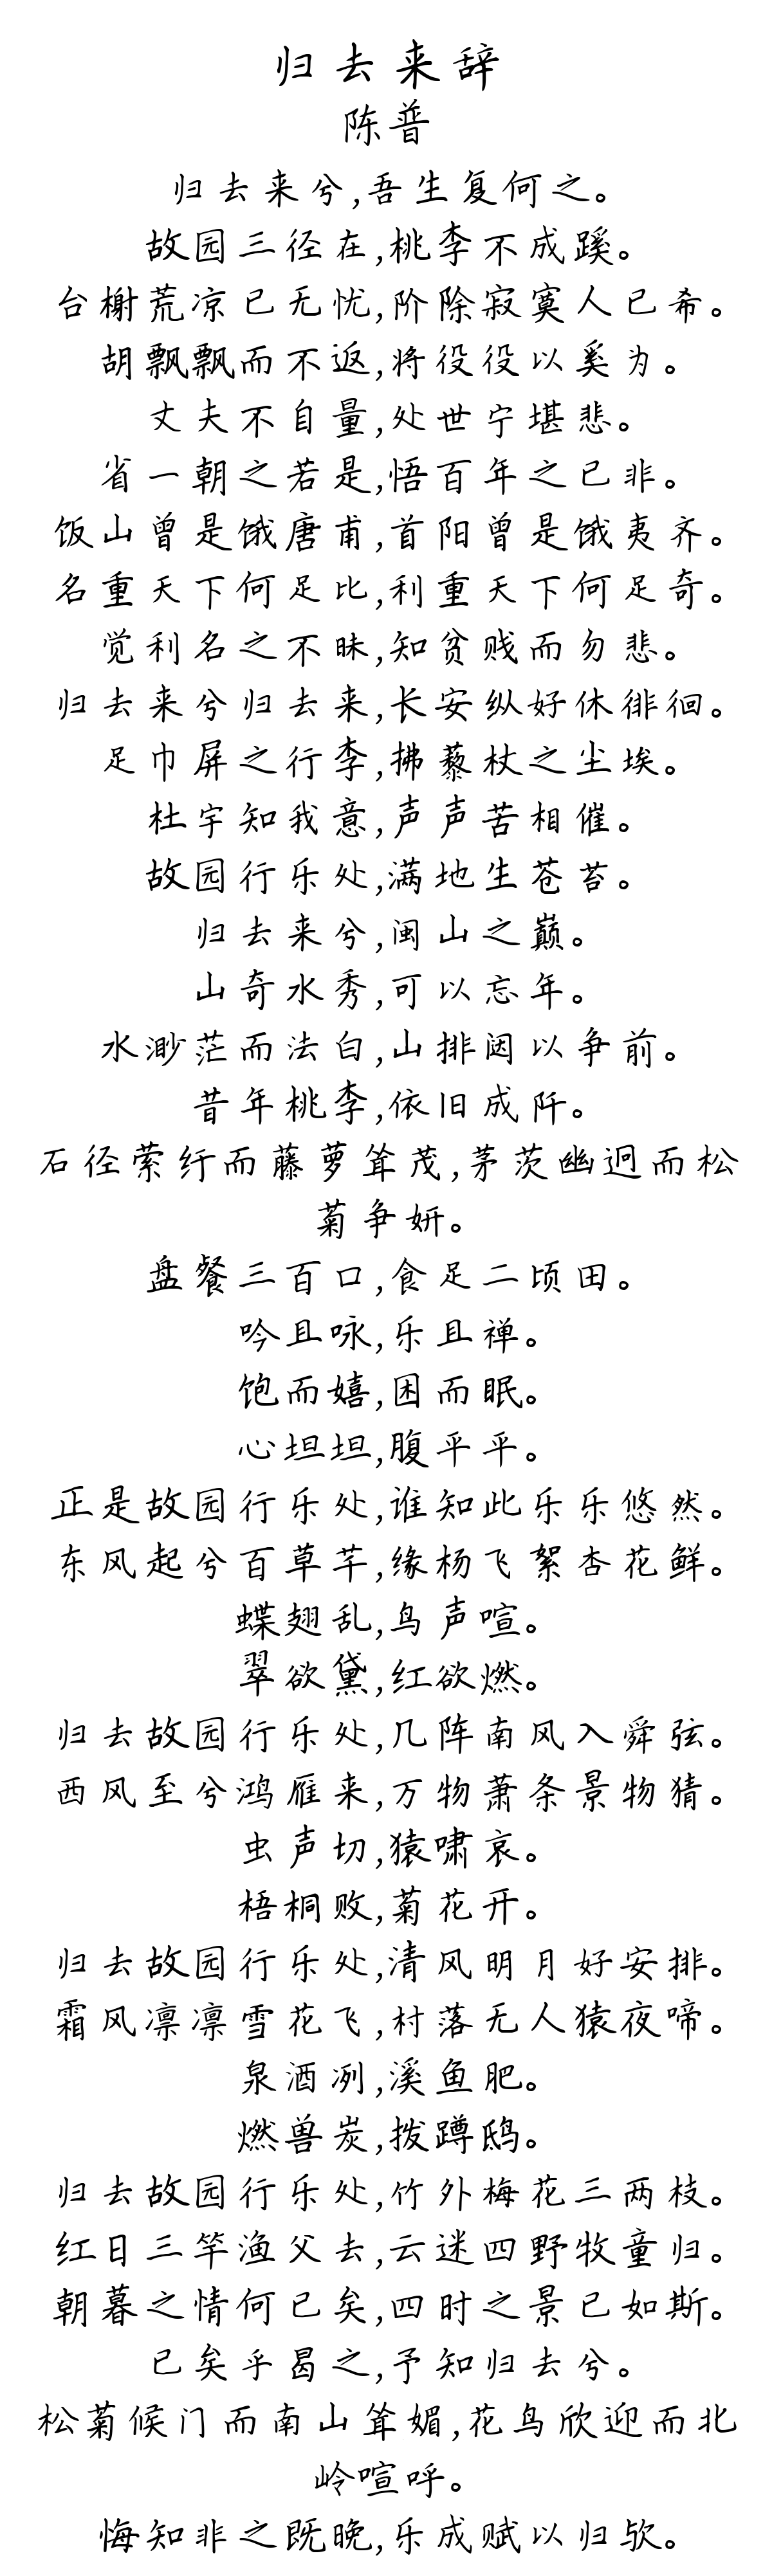 归去来辞
陈普
归去来兮,吾生复何之。
故园三径在,桃李不成蹊。
台榭荒凉已无忧,阶除寂寞人已希。
胡飘飘而不返,将役役以奚为。
丈夫不自量,处世宁堪悲。
省一朝之若是,悟百年之已非。
饭山曾是饿唐甫,首阳曾是饿夷齐。
名重天下何足比,利重天下何足奇。
觉利名之不昧,知贫贱而勿悲。
归去来兮归去来,长安纵好休徘徊。
足巾屏之行李,拂藜杖之尘埃。
杜宇知我意,声声苦相催。
故园行乐处,满地生苍苔。
归去来兮,闽山之巅。
山奇水秀,可以忘年。
水渺茫而法白,山排闼以争前。
昔年桃李,依旧成阡。
石径萦纡而藤萝耸茂,茅茨幽迥而松
菊争妍。
盘餐三百口,食足二顷田。
吟且咏,乐且禅。
饱而嬉,困而眠。
心坦坦,腹平平。
正是故园行乐处,谁知此乐乐悠然。
东风起兮百草芊,缘杨飞絮杏花鲜。
蝶翅乱,鸟声喧。
翠欲黛,红欲燃。
归去故园行乐处,几阵南风入舜弦。
西风至兮鸿雁来,万物萧条景物猜。
虫声切,猿啸哀。
梧桐败,菊花开。
归去故园行乐处,清风明月好安排。
霜风凛凛雪花飞,村落无人猿夜啼。
泉酒冽,溪鱼肥。
燃兽炭,拨蹲鸱。
归去故园行乐处,竹外梅花三两枝。
红日三竿渔父去,云迷四野牧童归。
朝暮之情何已矣,四时之景已如斯。
已矣乎曷之,予知归去兮。
松菊候门而南山耸媚,花鸟欣迎而北
岭喧呼。
悔知非之既晚,乐成赋以归欤。